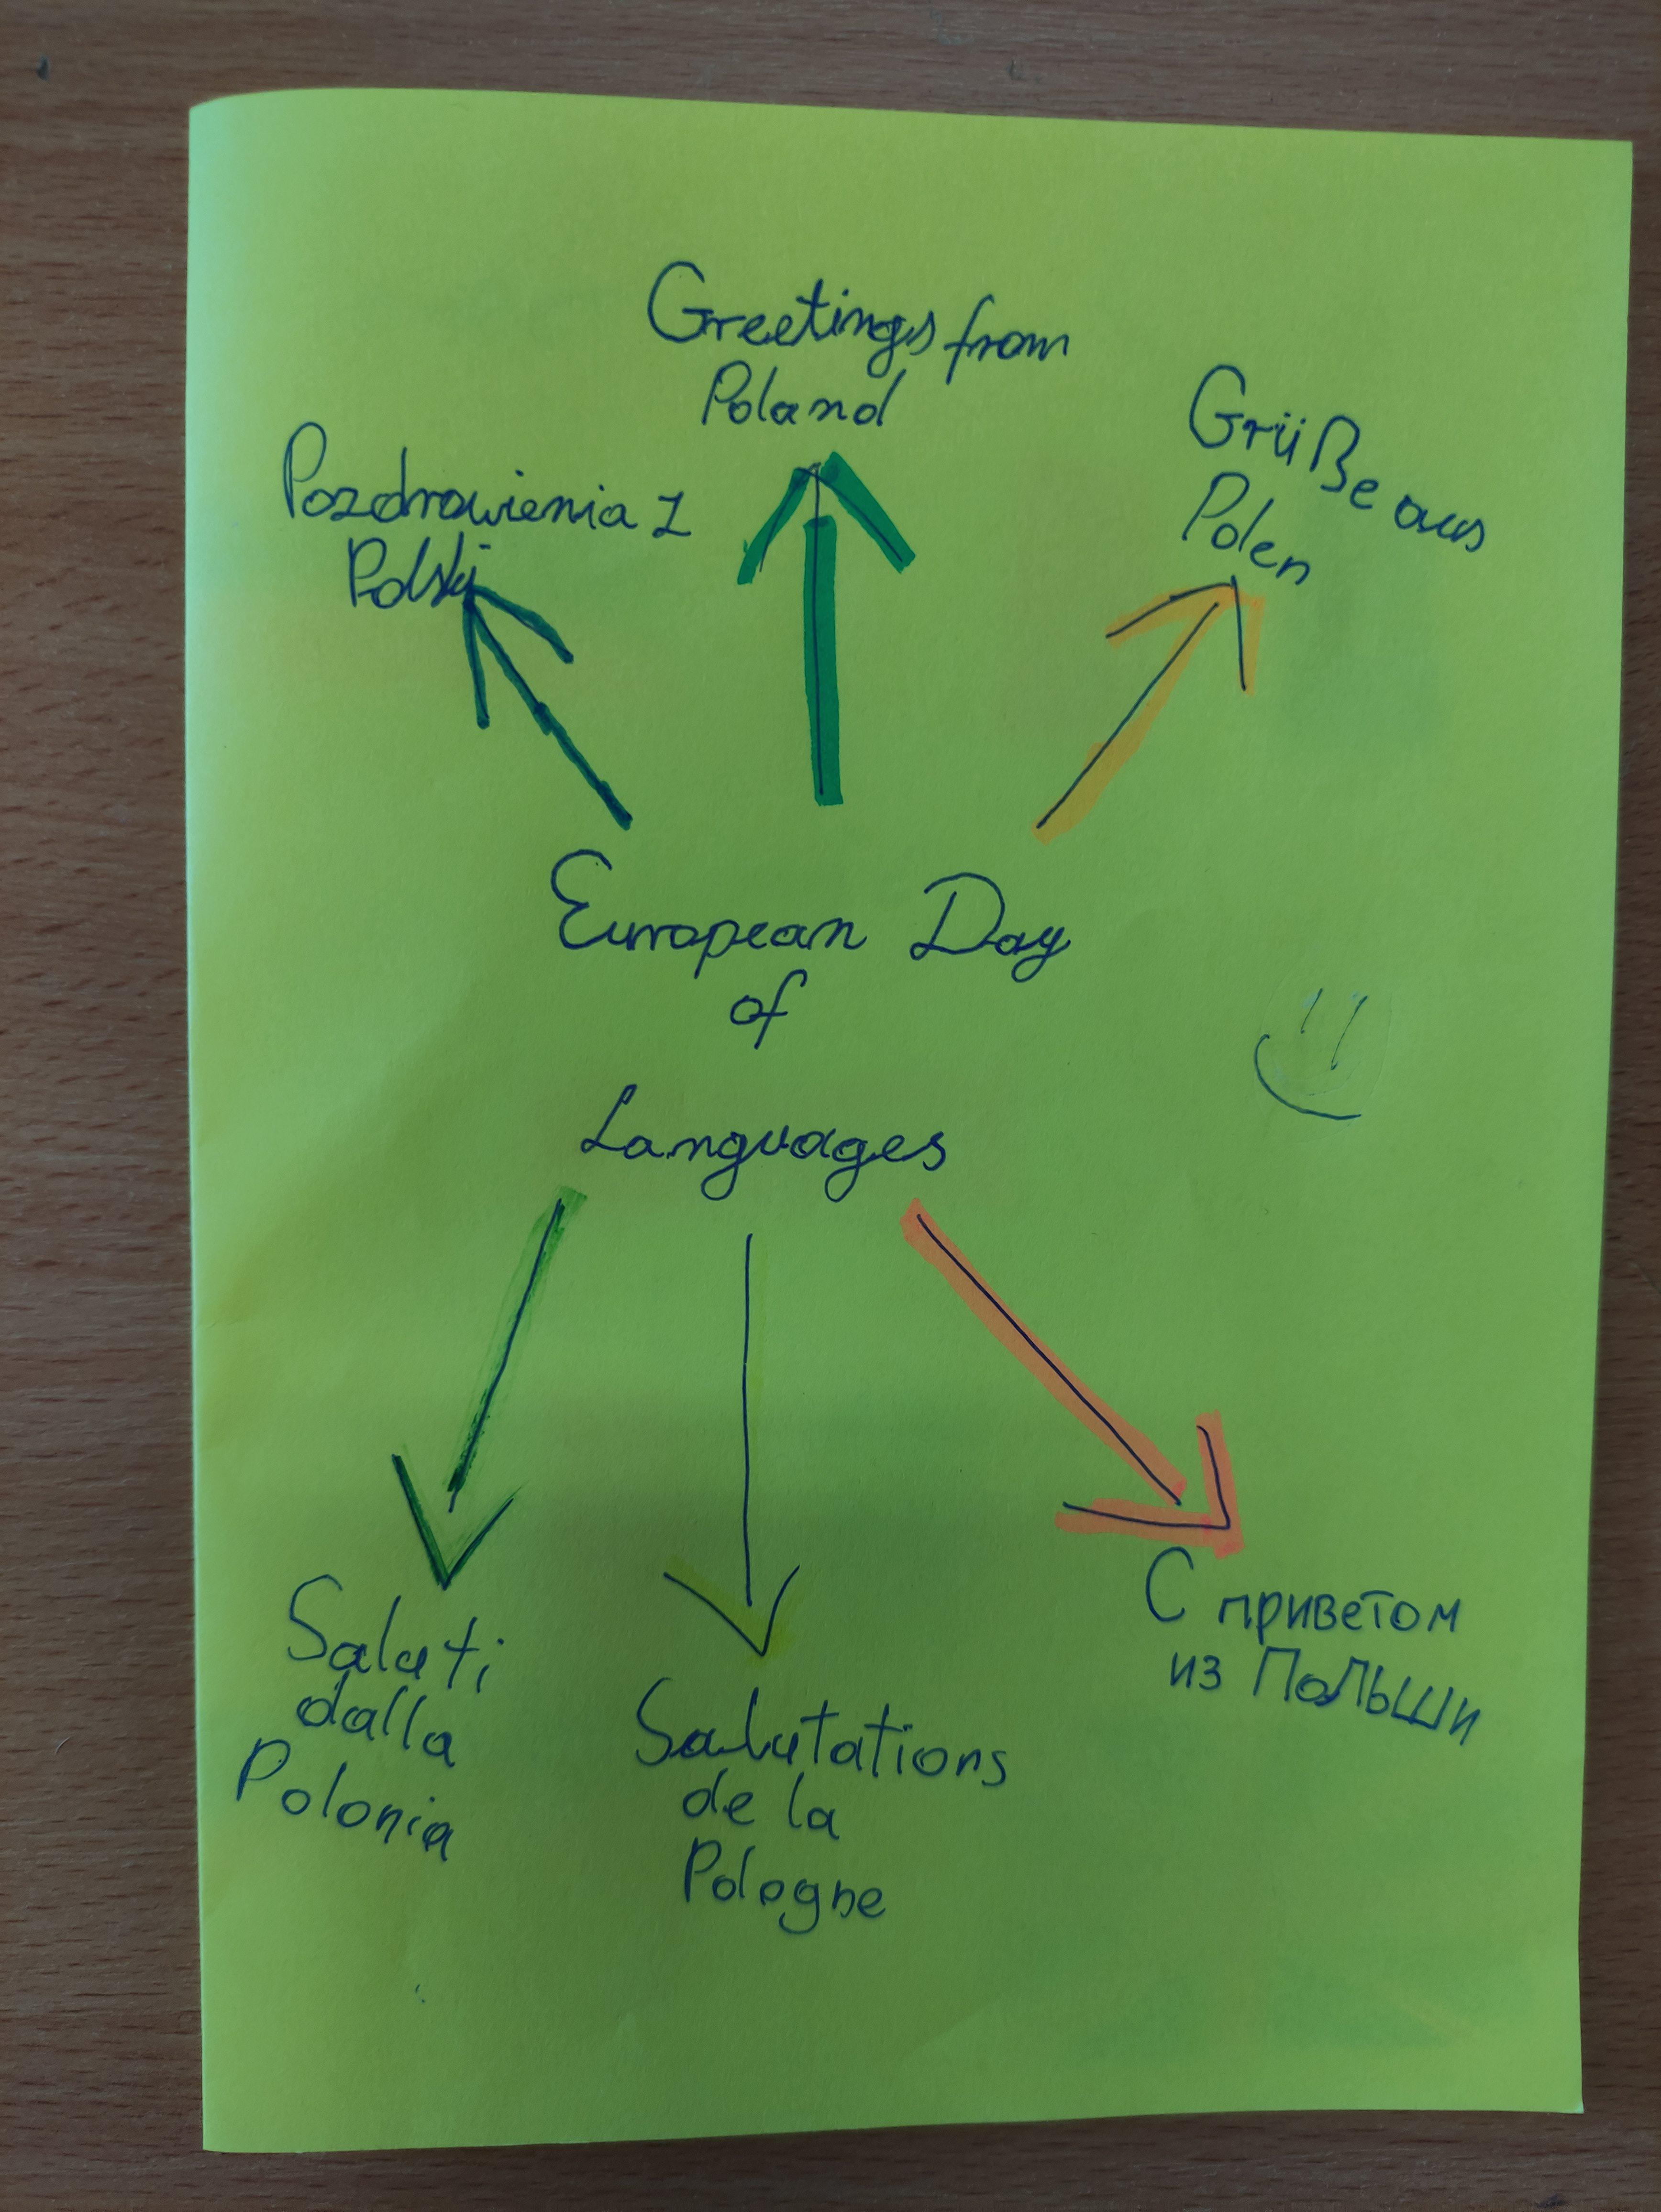 Greetings from
Poland
Pozdrowienia z
Polski
Grüße aus
Polen
European Day
of
Languages
Saluti
dalla
Polonia
Salutations
de la
Pologne
С приветом
из Польши